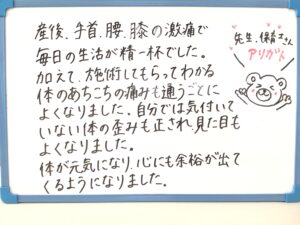 産後、手首、腰、膝の激痛で
毎日の生活が精一杯でした。
加えて、施術してもらってわかる
体のあちこちの痛みも通うごとに
よくなりました。自分では気付いて
いない体の歪みも正され、見た目も
よくなりました。
体が元気になり、心にも余裕が出て
くるようになりました。
先生、保育士さん
アリガト